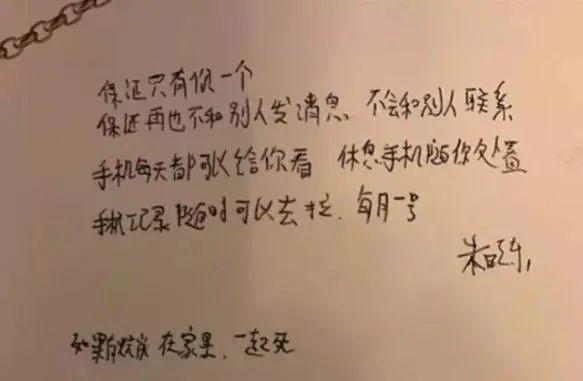 保证只有你一个
保证再也不和别人发消息 不会和别人联系
手机每天都可以给你看 休息手机随你处置
手机记录随时可以去拉. 每月一号
朱晓东
如果有 在家里. 一起死